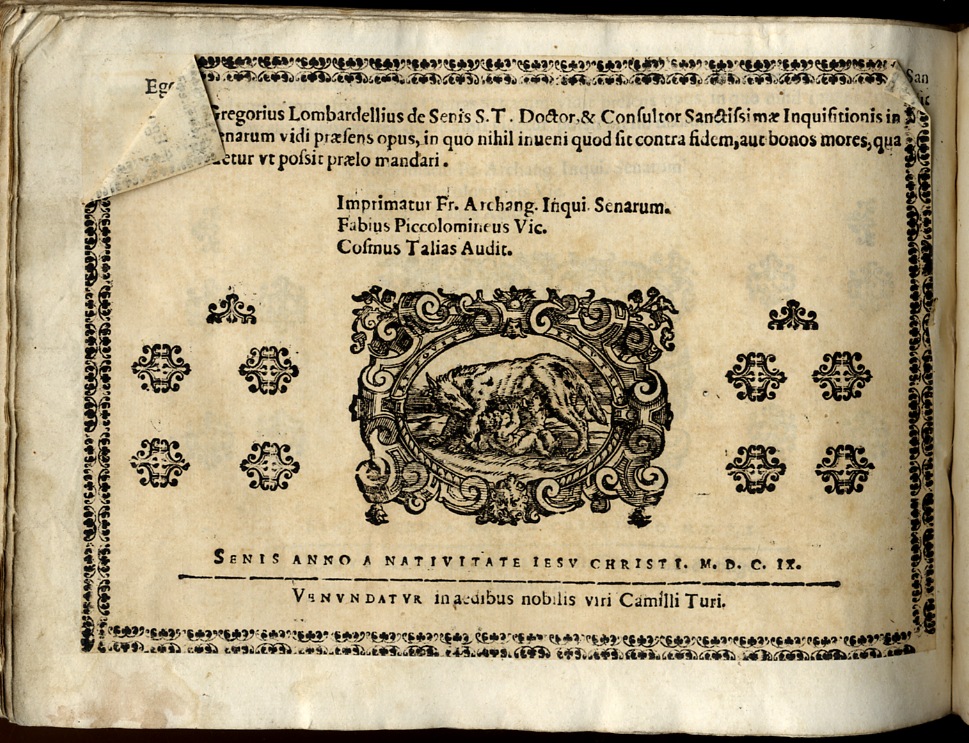 Ego
San
Gregorius Lombardellius de Senis S.T. Doctor.& Conſultor Sanctiſsimæ Inquiſitionis in
enarum vidi præſens opus, in quo nihil inueni quod ſit contra fidem, aut bonos mores, qua
etur vt poſsit prælo mandari.
Imprimatur Fr. Archang. Inqui. Senarum.
Fabius Piccolomineus Vic.
Coſmus Talias Audit.
SENIS ANNO A NATIVITATE IESV CHRISTI. M. D. C. IX.
VENVNDATVR in ædibus nobilis viri Camilli Turi.